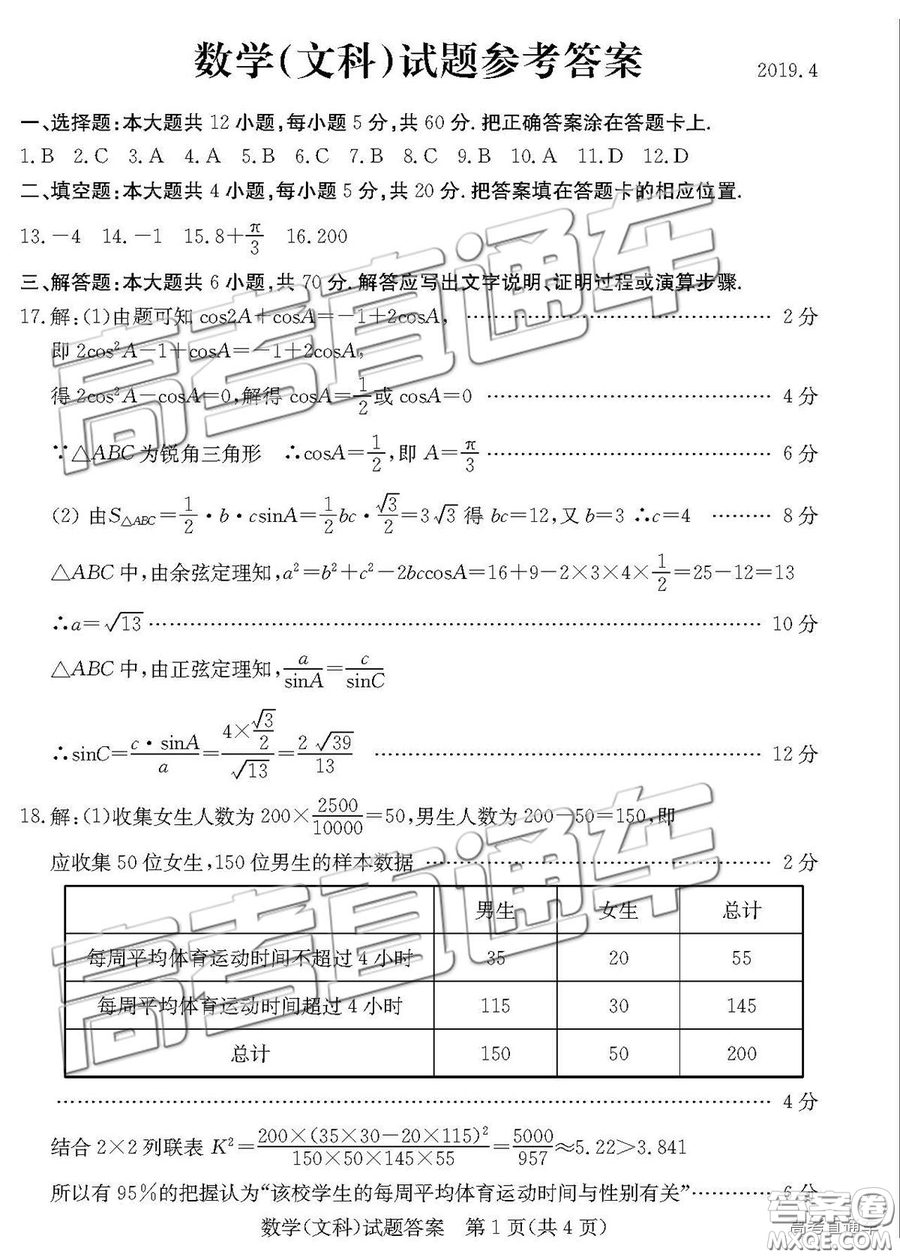 数学(文科)试题参考答案 2019.4
一、选择题:本大题共 12 小题,每小题 5 分,共 60 分.把正确答案涂在答题卡上.
1.B 2.C 3.A 4.A 5.B 6.C 7.B 8.C 9.B 10.A 11.D 12.D
二、填空题:本大题共 4 小题,每小题 5 分,共 20 分.把答案填在答题卡的相应位置.
13.-4 14.-1 15.8+π/3 16.200
三、解答题:本大题共 6 小题,共 70 分.解答应写出文字说明、证明过程或演算步骤.
17.解:(1)由题可知 cos2A+cosA=-1+2cosA, ………… 2 分
即 2cos²A-1+cosA=-1+2cosA,
得 2cos²A-cosA=0,解得 cosA=1/2 或 cosA=0 ………… 4 分
∵△ABC 为锐角三角形 ∴cosA=1/2,即 A=π/3 ………… 6 分
(2) 由S△ABC=1/2·b·csinA=1/2bc·√3/2=3√3 得 bc=12,又 b=3 ∴c=4 ……… 8 分
△ABC 中,由余弦定理知,a²=b²+c²-2bccosA=16+9-2×3×4×1/2=25-12=13
∴a=√13 ………… 10 分
△ABC 中,由正弦定理知,a/sinA=c/sinC
∴sinC=c·sinA/a=(4×√3/2)/√13=2√39/13 ………… 12 分
18.解:(1)收集女生人数为 200×2500/10000=50,男生人数为 200-50=150,即
应收集 50 位女生,150 位男生的样本数据 ………… 2 分
男生 女生 总计
每周平均体育运动时间不超过 4 小时 35 20 55
每周平均体育运动时间超过 4 小时 115 30 145
总计 150 50 200
………… 4 分
结合 2×2 列联表 K²=200×(35×30-20×115)²/150×50×145×55=5000/957≈5.22>3.841
所以有 95%的把握认为“该校学生的每周平均体育运动时间与性别有关”………… 6 分
数学(文科)试题答案 第 1 页(共 4 页)
高考直通车
高考直通车
高考直通车
答案圈
MXQE.COM